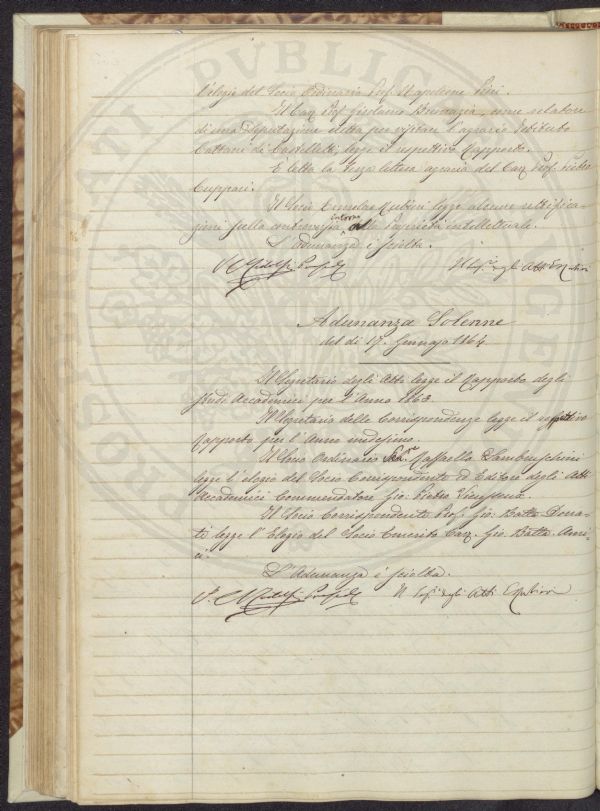 l'elogio del Socio Ordinario Prof. Napoleone Pini.
Il Cav. Prof. Girolamo Buonazia, come relatore
di una deputazione eletta per visitare l'agrario Istituto
Cattani di Castelletti, legge il respettivo Rapporto.
È letta la Terza lettera agraria del Cav. Prof. Pietro
Cuppari.
Il Socio Emulo Rubini legge alcune rettifica-
zioni sulla controversia intorno alla Proprietà intellettuale.
L'Adunanza è sciolta.
Ridolfi Presid.
Il Seg. degli Atti
Adunanza Solenne
del dì 17. Gennajo 1864
Il Segretario degli Atti legge il Rapporto degli
studi Accademici per l'Anno 1863.
Il Segretario delle Corrispondenze legge il respettivo
rapporto per l'Anno medesimo.
Il Socio Ordinario Raffaello Lambruschini
legge l'elogio del Socio Corrispondente ed Editore degli Atti
Accademici Commendatore Gio: Pietro Vieusseux.
Il Socio Corrispondente Prof. Gio: Batta Dona-
ti legge l'Elogio del Socio Emerito Cav. Gio Batta Ami-
ci.
L'Adunanza è sciolta.
Ridolfi Presid.
Il Seg. degli Atti
PVBLIC